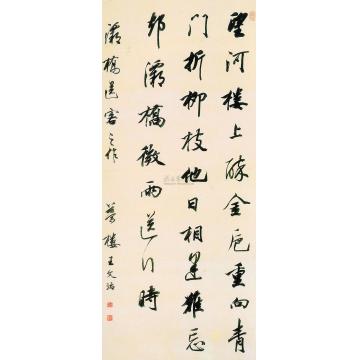 望河楼上酹金卮重向青
门折柳枝他日相逢难忘
却灞橋微雨送行時
灞橋送客之作
夢楼王文治